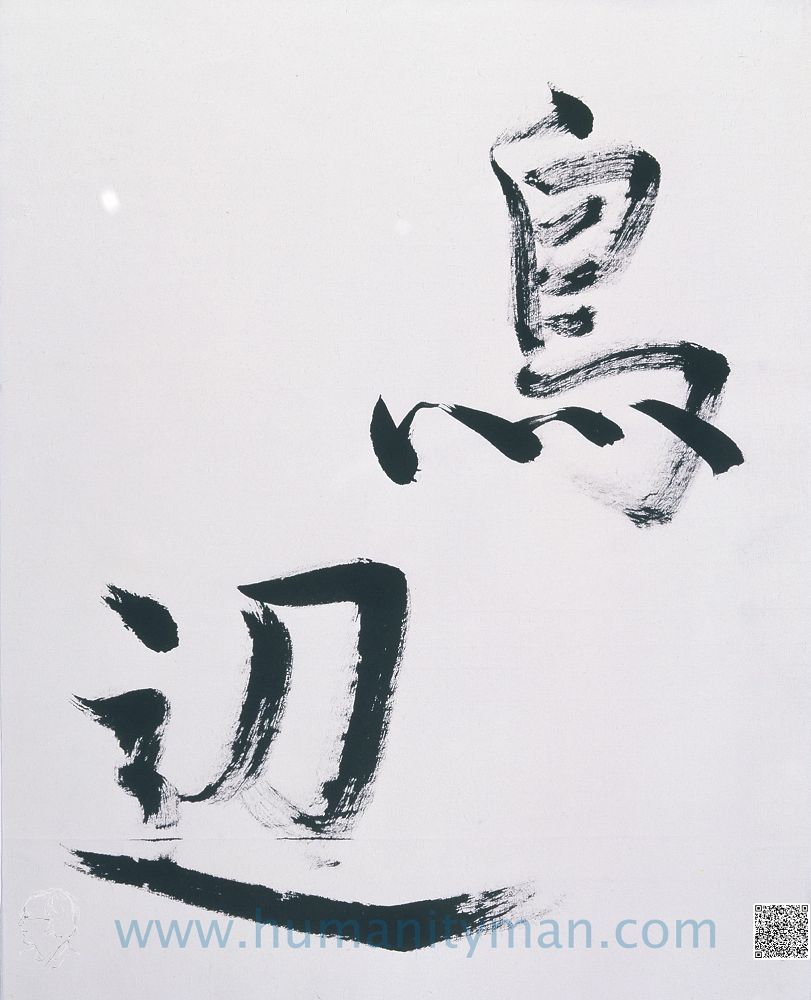 鳥
辺
www.humanityman.com